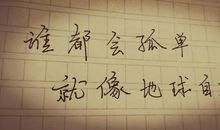 谁都会孤单
就像地球自